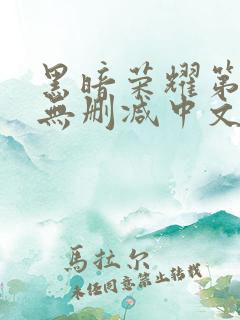 黑暗荣耀第
無删减中文
馬拉尔
未经同意禁止转载